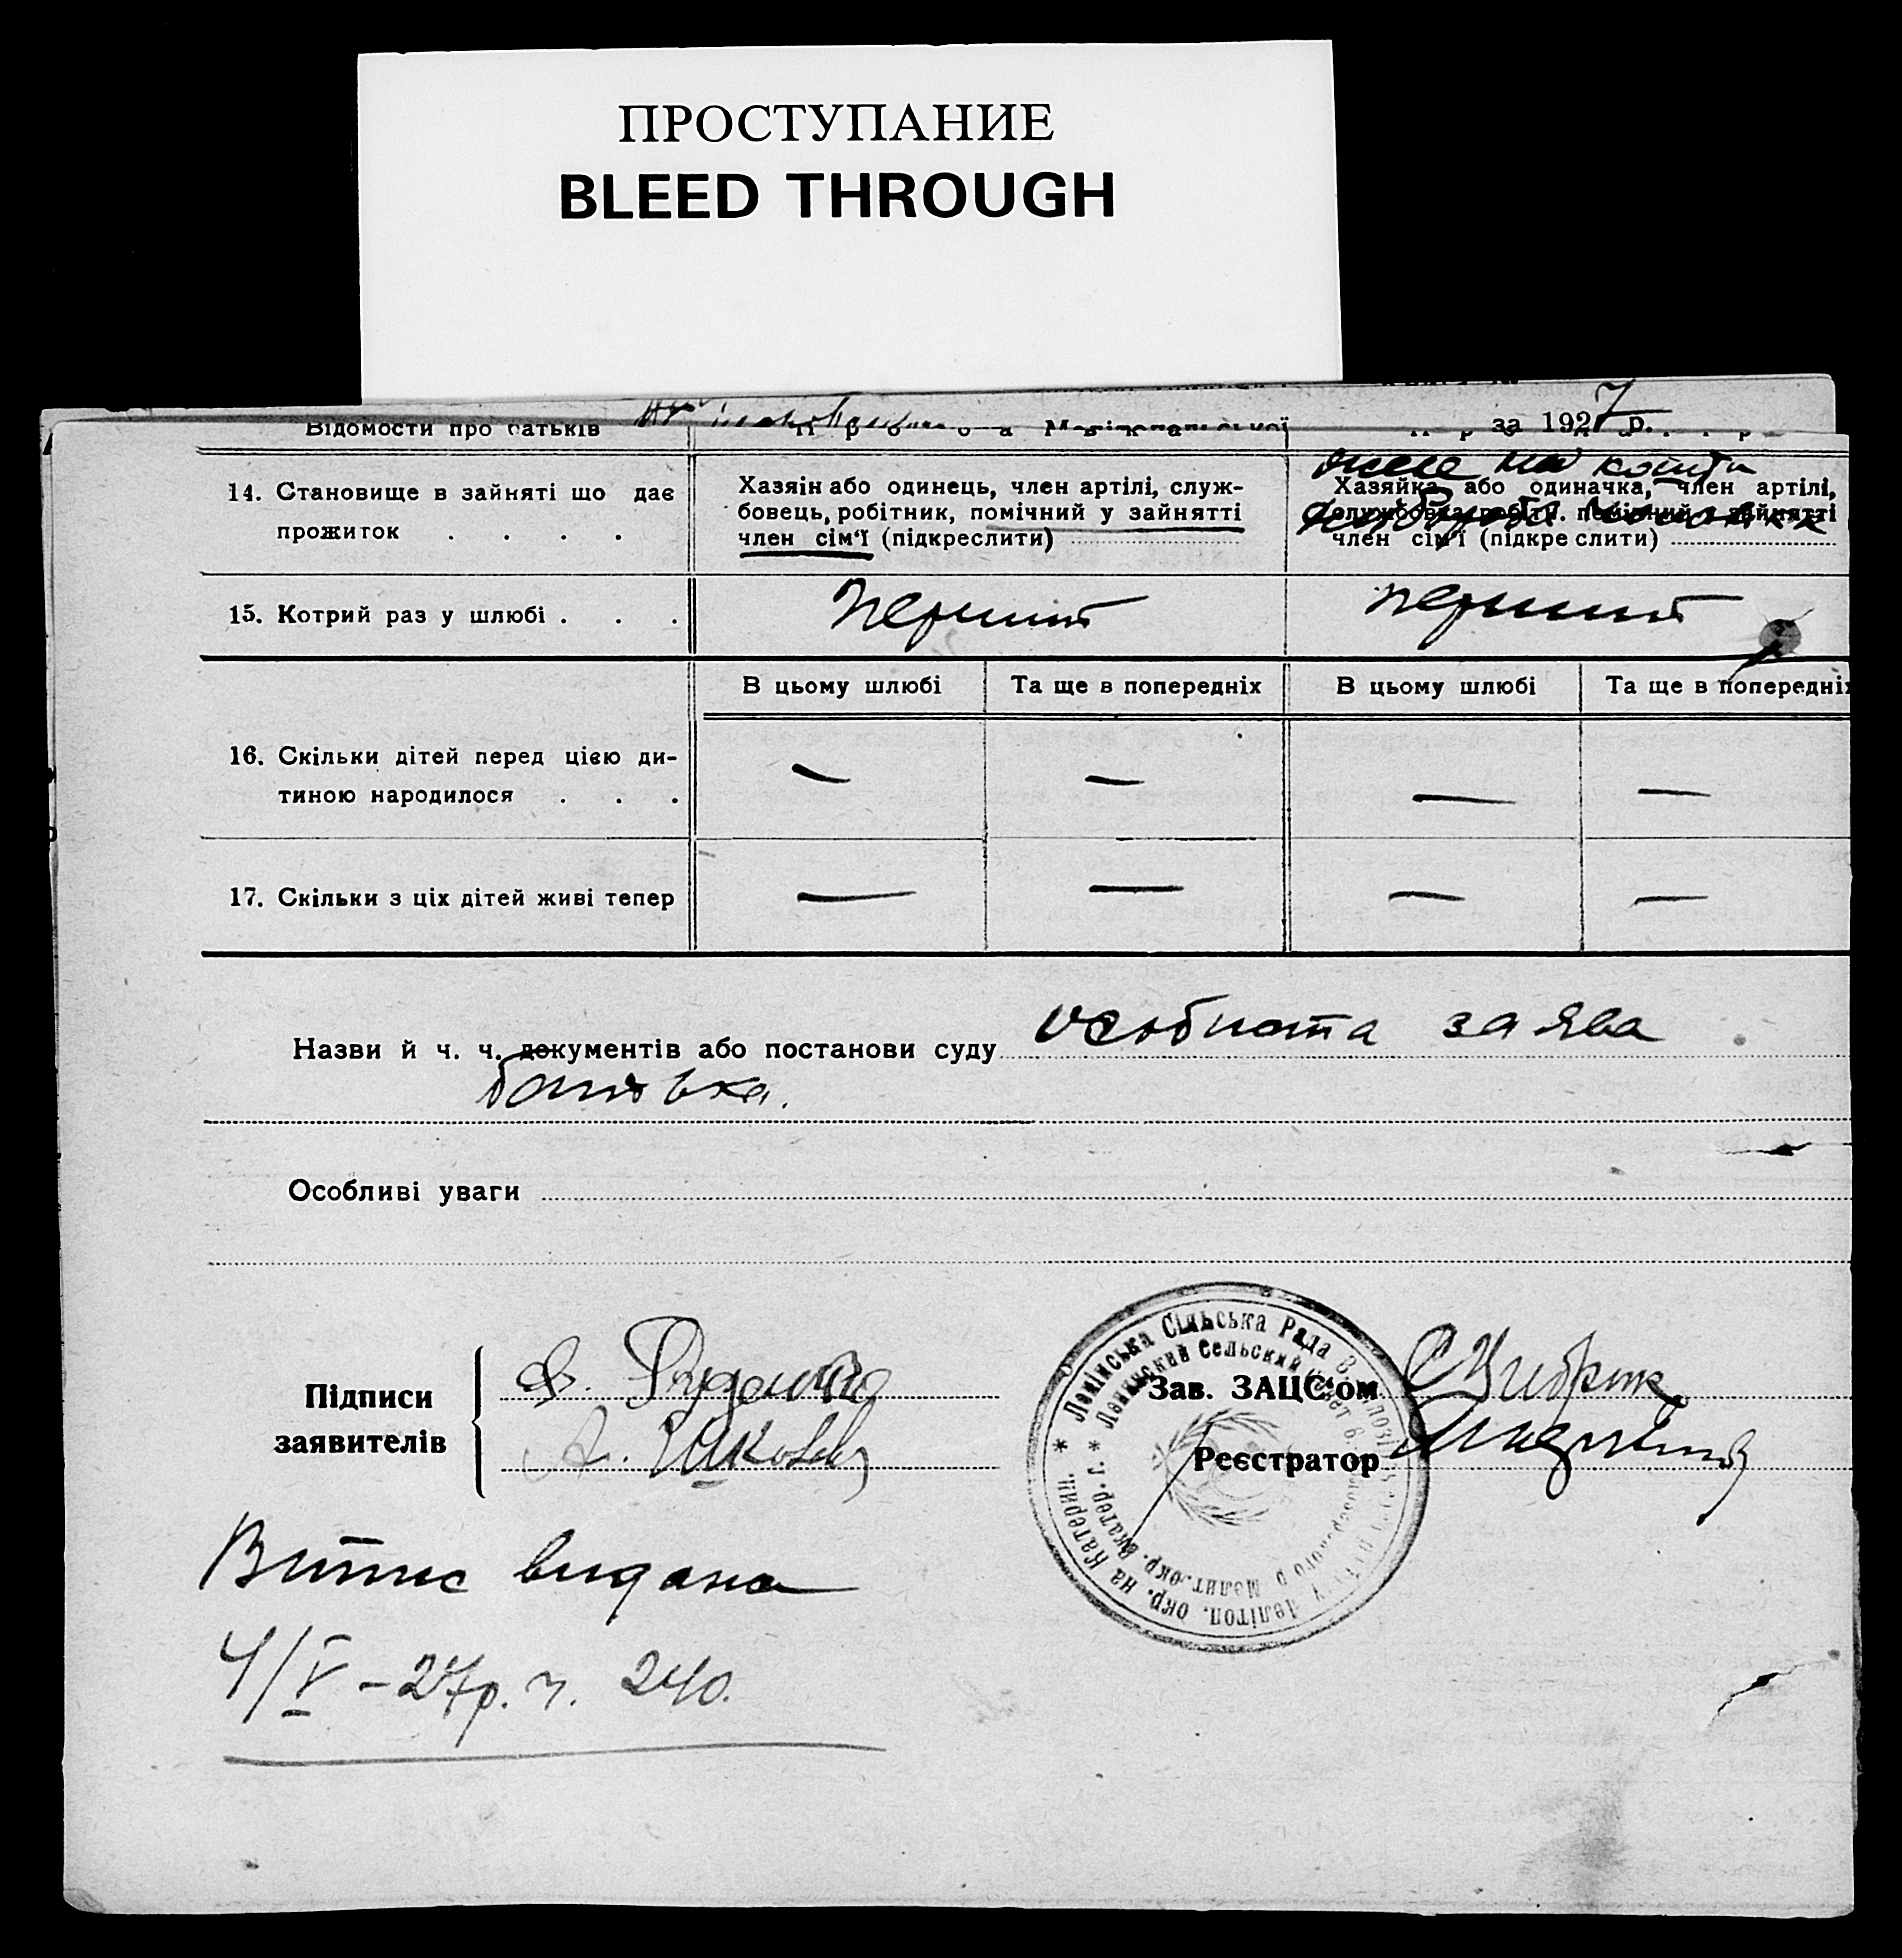 ПРОСТУПАНИЕ
BLEED THROUGH
за 1927 р.
Відомости про батьків
14. Становище в зайняті що дає
прожиток . . . .
Хазяїн або одинець, член артілі, служ-
бовець, робітник, помічний у зайнятті
член сім'ї (підкреслити)
живе на кошти
Хазяйка або одиначка, член артілі,
помічний у зайнятті
член сім'ї (підкреслити)
15. Котрий раз у шлюбі . . .
перший
перший
В цьому шлюбі
Та ще в попередніх
В цьому шлюбі
Та ще в попередніх
16. Скільки дітей перед цією ди-
тиною народилося . . .
— — — —
17. Скільки з ціх дітей живі тепер
— — — —
Назви й ч. ч. документів або постанови суду особиста заява
батька.
Особливі уваги
Підписи
заявителів
Зав. ЗАЦС'ом
Реєстратор
Ленінська Сільська Рада
Ленинский Сельский Совет
Витяг видано
4/V – 27р. ч. 240.